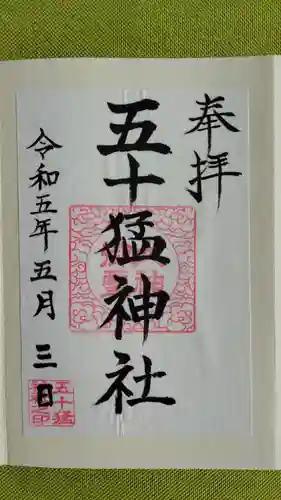 奉拝
五十猛神社
令和五年五月三日
五十猛